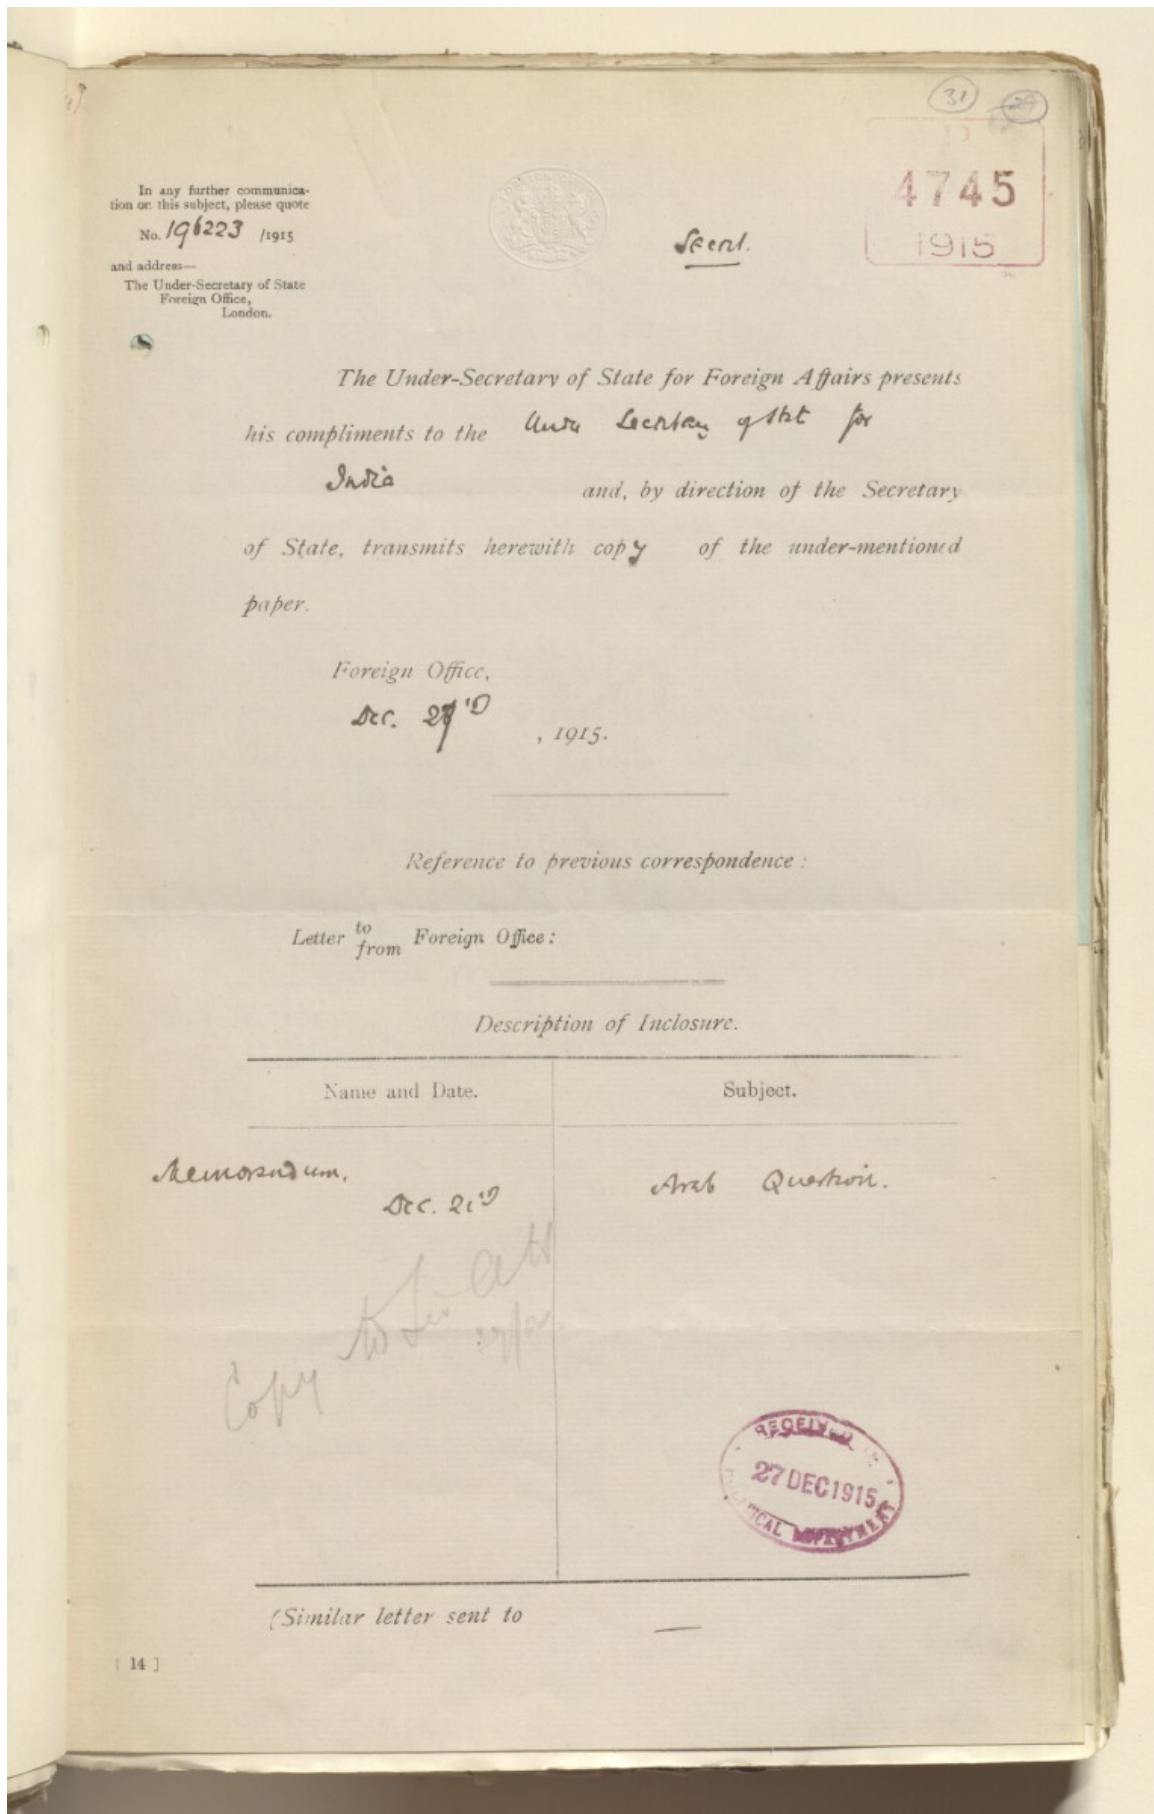 31
29
P
4745
1915
In any further communica-
tion on this subject, please quote
No. 196223 /1915
and address—
The Under-Secretary of State
Foreign Office,
London.
Secret.
The Under-Secretary of State for Foreign Affairs presents
his compliments to the Under Secretary of State for
India and, by direction of the Secretary
of State, transmits herewith copy of the under-mentioned
paper.
Foreign Office,
Dec. , 1915.
Reference to previous correspondence :
Letter to from Foreign Office :
Description of Inclosure.
Name and Date. Subject.
Memorandum. Arab Question.
Dec.
Copy to Sir AH
RECEIVED
27 DEC 1915
POLITICAL DEPARTMENT
(Similar letter sent to —
[ 14 ]